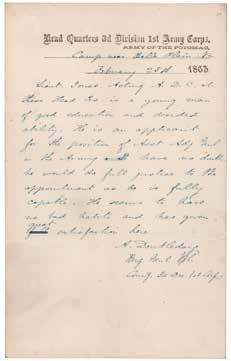 Head Quarters 3d Division 1st Army Corps,
ARMY OF THE POTOMAC,
Camp near Belle Plain Va
February 23d 1863
Lieut Jones Acting A. D. C. at
these Head Qrs is a young man
of good education and decided
ability. He is an applicant
for the position of Asst Adj Genl
in the Army & I have no doubt
he would do full justice to the
appointment as he is fully
capable. He seems to have
no bad habits and has given
great satisfaction here
A. Doubleday
Brig Genl Vols
Comg 3d Div 1st Corps